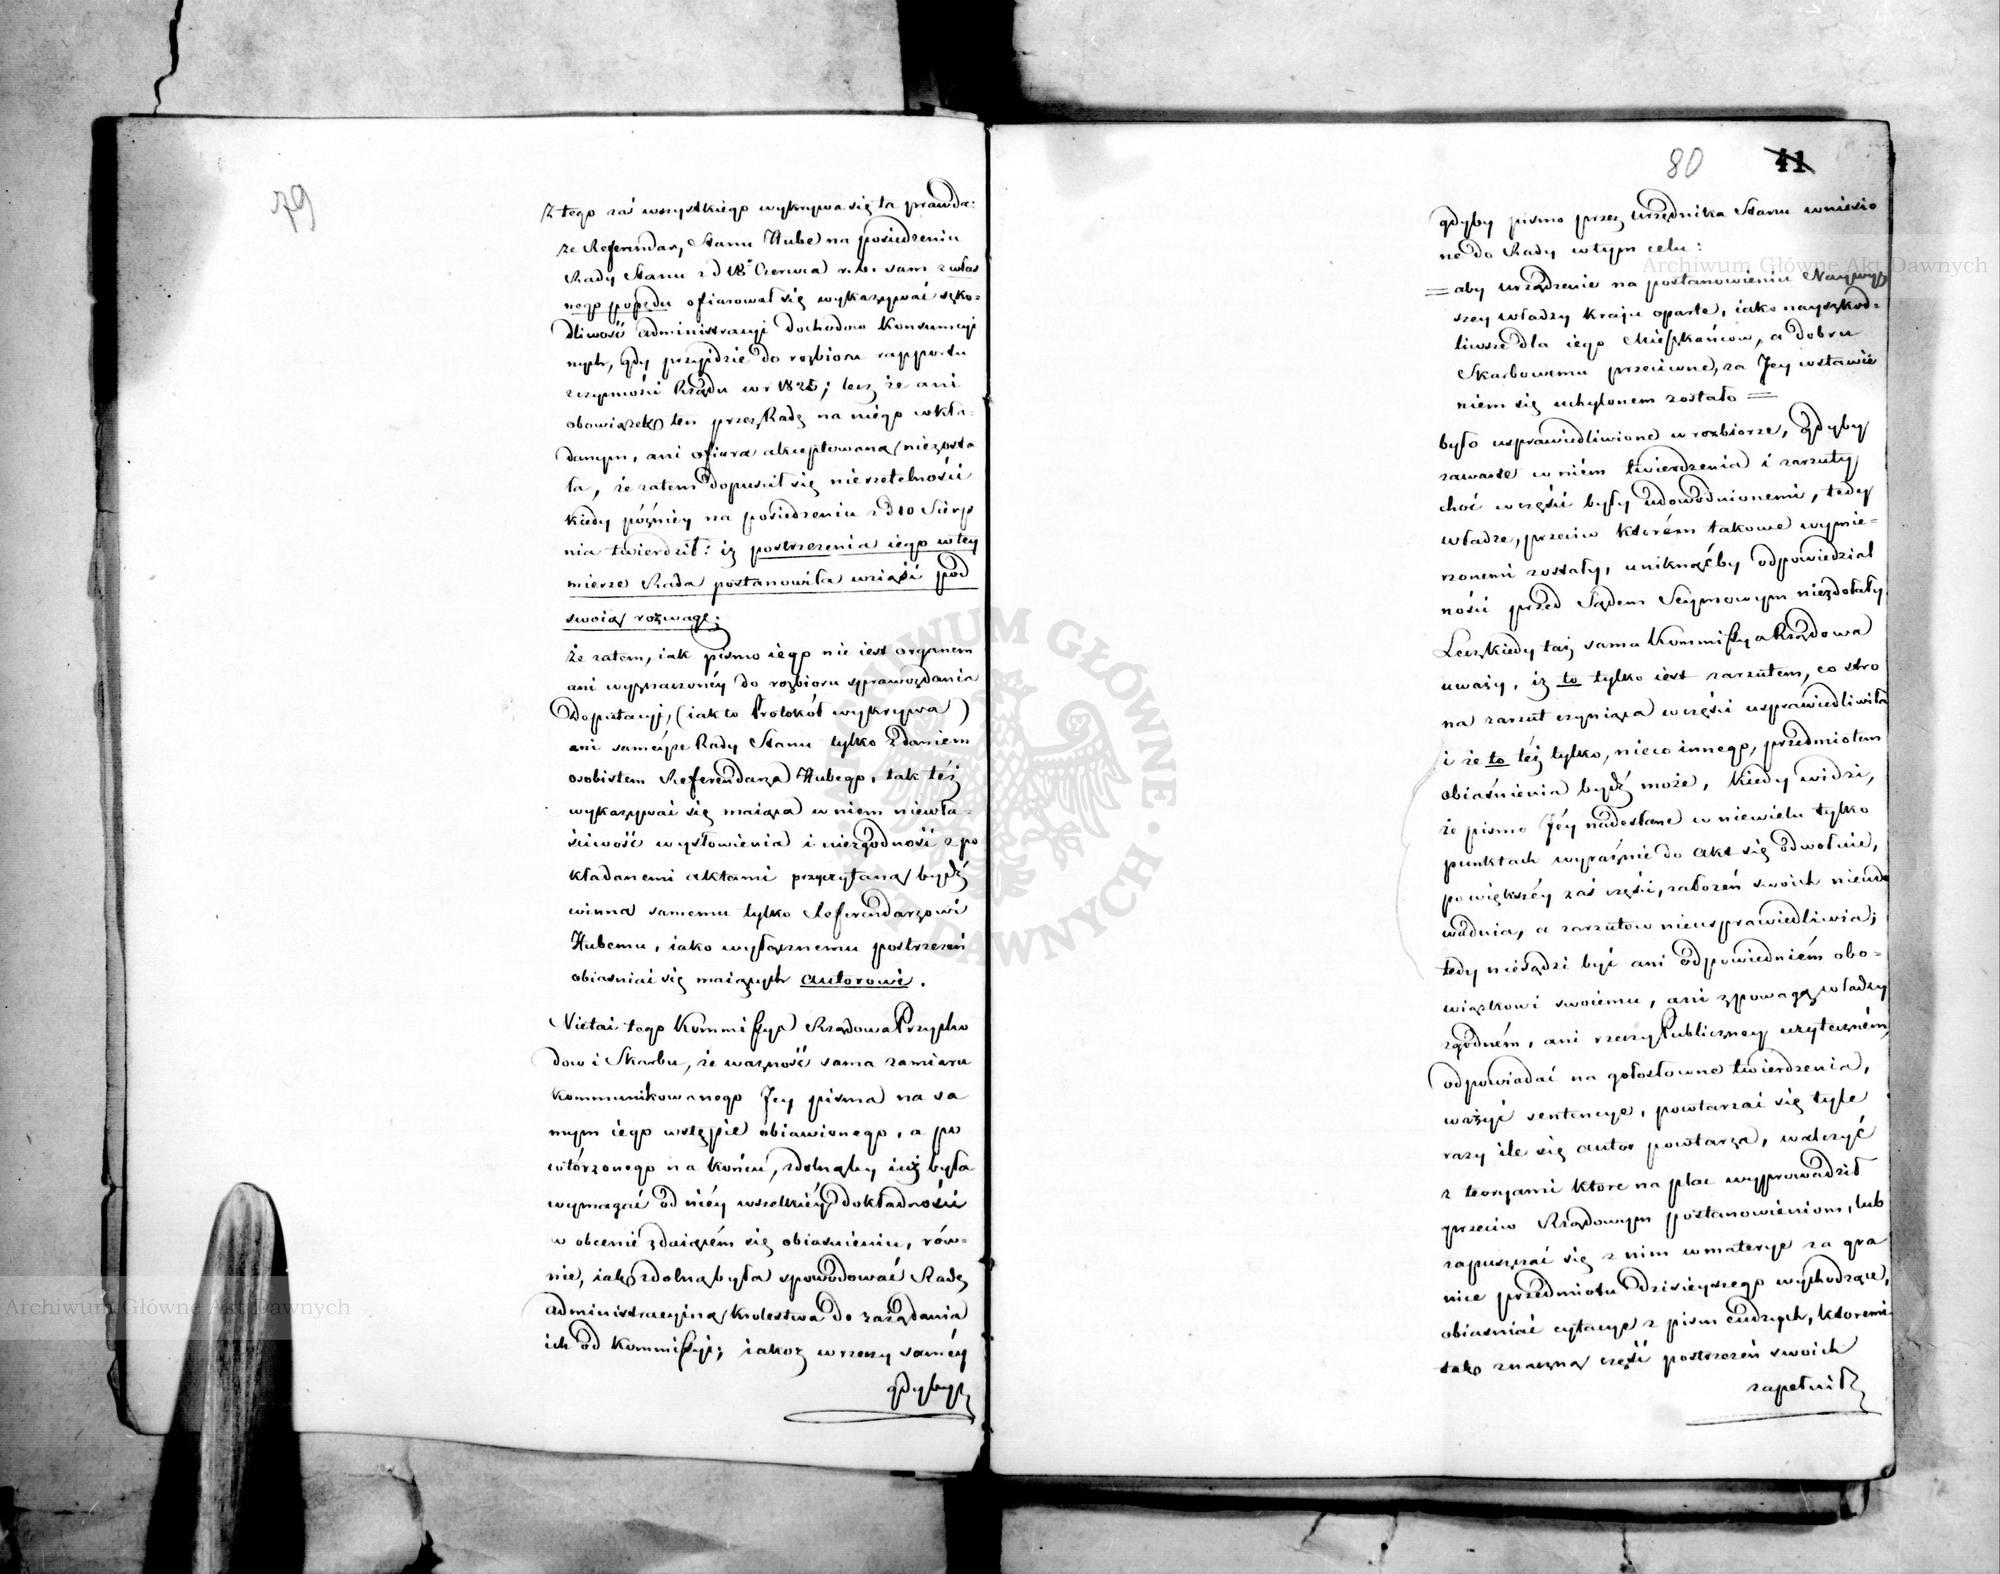 79
Z tego zaś wszystkiego wykrywa się ta prawda:
że Referendarz Stanu Hube na posiedzeniu
Rady Stanu z d 18º Czerwca r. b. sam z włas
nego popędu ofiarował się wykazywać szko-
dliwość administracyi Dochodow Konsumcyi
nych, gdy przyjdzie do rozbioru rapportu
czynności Rządu w r 1825; lecz że ani
obowiązek ten przez Radę na niego wkła-
danym, ani ofiara akceptowaną niezosta
ła, że zatem dopuscił się nierzetelności
kiedy późniey na posiedzeniu z d 10 Sierp
nia twierdził: iż postrzeżenia iego w tey
mierze Rada postanowiła wziąść pod
swoią rozwagę.
że zatem, iak pismo iego nie iest organem
ani wyznaczonéy do rozbioru sprawozdania
Deputacyi, (iak to Protokół wykrywa)
ani saméyże Rady Stanu tylko zdaniem
osobistem Referendarza Hubego, tak téż
wykazywać się maiąca w niem niewła-
ściwość wysłowienia i niezgodność z po
kładanemi aktami przyczytaną bydź
winna samemu tylko Referendarzowi
Hubemu, iako wyłącznemu postrzeżeń
obiasniać się maiących autorowi.
Nietai tego Kommissya Rządowa Przycho
dow i Skarbu, że ważność sama zamiaru
kommunikowanego Jey pisma na sa
mym iego wstępie obiawionego, a po
wtórzonego na końcu, zdolnąby iuż była
wymagać od niéy wszelkiéy dokładności
w obcenié zdaiącém się obiasnieniu, rów-
nie, iak zdolną była spowodować Radę
administracyiną Krolestwa do zażądania
ich od Kommissyi; iakoż w rzeczy saméy
gdyby
80
41
gdyby pismo przez Urzędnika Stanu wniesio
ne do Rady w tym celu:
= aby urządzenie na postanowieniu Naywyż
szey władzy Kraju oparte, iako nayszkod-
liwsze dla iego Mieszkańcow, a dobru
Skarbowemu przeciwne, za Jey wstawie
niem się uchylonem zostało =
było usprawiedliwione w rozbiorze, gdyby
zawarte w niem twierdzenia i zarzuty
choć w części były udowodnionemi, tedy
władze, przeciw którém takowe wymie-
rzonemi zostały, uniknąćby odpowiedzial
ności przed Sądem Seymowym niezdołały.
Lecz kiedy taż sama Kommissya Rządowa
uważy, iż to tylko iest zarzutem, co stro
na zarzut czyniąca w części usprawiedliwiła
i że to też tylko, nieco innego, przedmiotem
obiaśnienia bydź może, Kiedy widzi,
że pismo Jéy nadesłane w niewielu tylko
punktach wyraźnie do akt się odwołuie,
po większéy zaś części, założeń swoich nieudo
wadnia, a zarzutow nieusprawiedliwia;
tedy niesądzi być ani odpowiedniém obo-
wiązkowi swoiemu, ani z powagą władzy
zgodném, ani rzeczy Publiczney użyteczném,
odpowiadać na gołosłowne twierdzenia,
ważyć sentencye, powtarzać się tyle
razy ile się autor powtarza, walczyć
z teoryami ktore na plac wyprowadził
przeciw Rządowym postanowieniom, lub
zapuszczać się z nim w materye za gra
nice przedmiotu dzisieyszego wychodzące,
obiasniać cytacye z pism cudzych, ktoremi
tak znaczną część postrzeżeń swoich
zapełnił
Archiwum Główne Akt Dawnych
Archiwum Główne Akt Dawnych
ARCHIWUM GŁÓWNE AKT DAWNYCH